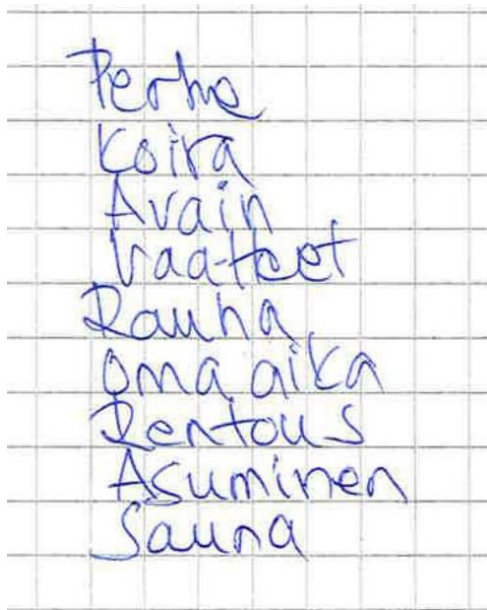 Perhe
Koira
Avain
Vaatteet
Rauha
oma aika
Rentous
Asuminen
Sauna